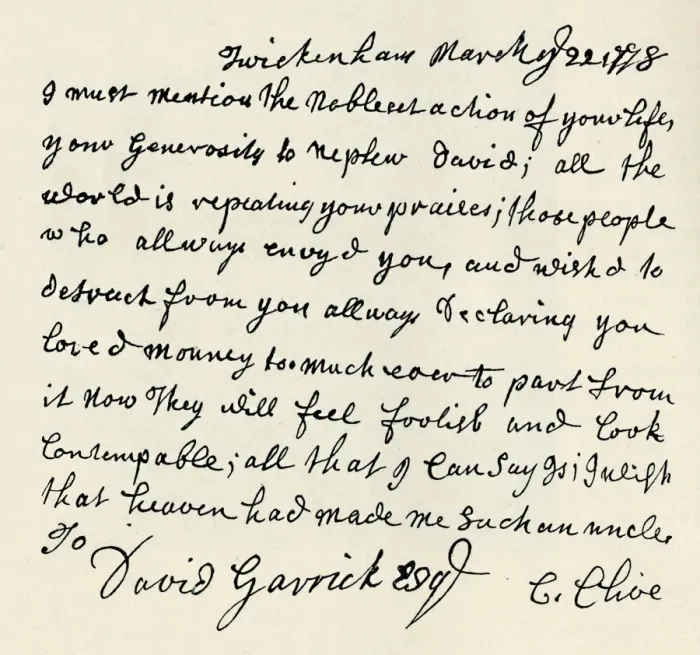 Twickenham March ye 22 1778
I must mention the Noblest action of your life,
your Generosity to Nephew David; all the
world is repeating your praises; those people
who allways envyd you, and wishd to
detract from you allways Declaring you
loved Mounney too much ever to part from
it Now They will feel foolish and look
Contempable; all that I Can Say Is; I wish
that heaven had made me Such an uncle.
To
David Garrick Esqr C. Clive